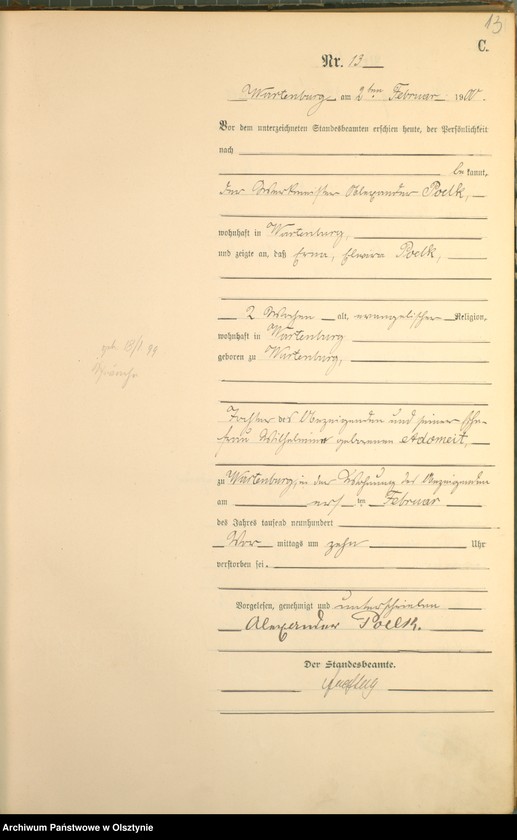 13
C.
Nr. 13
Wartenburg am 2ten Februar 1900.
Vor dem unterzeichneten Standesbeamten erschien heute, der Persönlichkeit
nach
bekannt,
der Werkmeister Alexander Poelk,
wohnhaft in Wartenburg,
und zeigte an, daß Erna, Elwira Poelk,
2 Wochen alt, evangelischer Religion,
wohnhaft in Wartenburg
geboren zu Wartenburg,
Tochter des Anzeigenden und seiner Ehe-
frau Wilhelmine geborenen Adomeit,
zu Wartenburg, in der Wohnung des Anzeigenden
am ersten Februar
des Jahres tausend neunhundert
Vor mittags um zehn Uhr
verstorben sei.
Vorgelesen, genehmigt und unterschrieben
Alexander Poelk.
Der Standesbeamte.
Archiwum Państwowe w Olsztynie